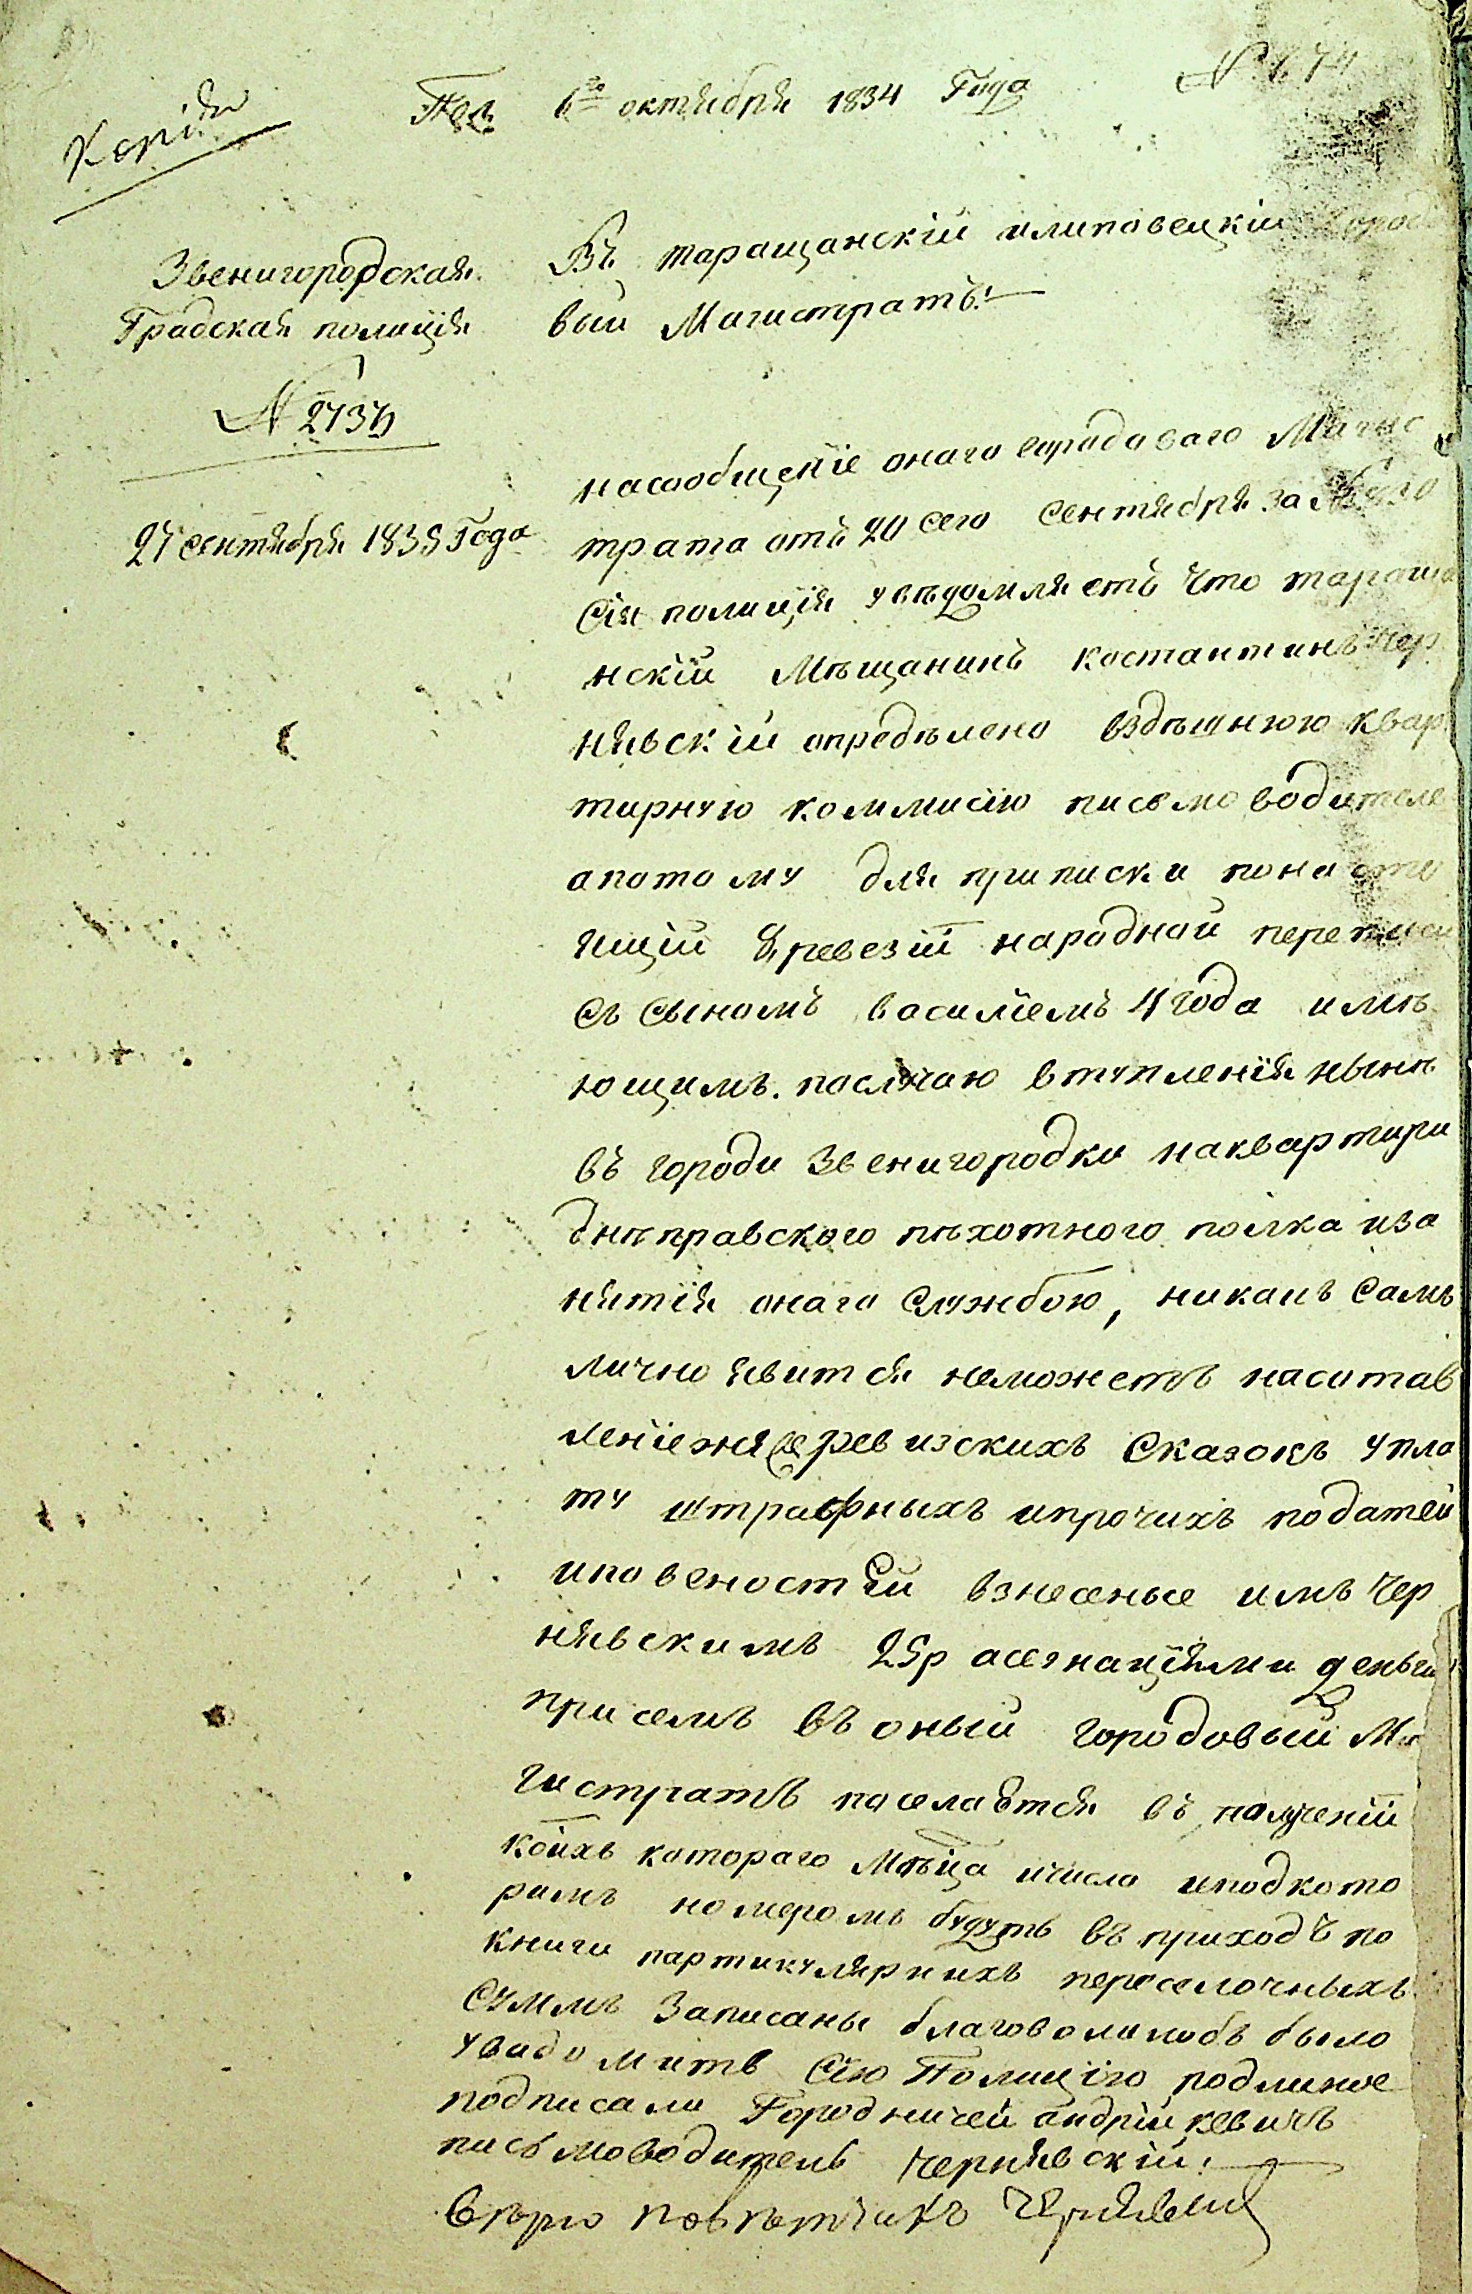 Копія
Пол. 6го октября 1834 Года
Звенигородская
Градская полиція
N 2737
27 сентября 1834 Года
Въ таращанскій илиповецкій Городо
вый Магистратъ!
насообщеніе онаго городоваго Магис
трата отъ 20 сего сентября за №
Сія полиція увѣдомляетъ что тараща
нскій Мѣщанинъ костантинъ Чер
нявскій опредѣлено вздѣшнюю квар
тирную коммисію письмоводителе
апотому для приписки понасто
ящій 8 ревезіи народной переписи
съ сыномъ василіемъ 4 года имѣ
ющимъ. послучаю втупленія нынѣ
въ городи Звенигородки наквартири
днѣправского пѣхотного полка иза
нятія онаго службою, никакъ самъ
лично явится неможетъ насотав
леніе ревизскихъ Сказокъ упла
ту штрафныхъ ипрочихъ податей
иповеностей взнесеные имъ Чер
нявскимъ 25р асегнаціями деньги
присемъ въ оный городовый Ма
гистратъ поселается въ полученій
коихъ котораго Мѣца ичисла иподкото
римъ номеромъ будутъ въ приходъ по
книги партикулярнихъ переселочныхъ
Суммъ Записаны благоволилобъ было
увидомить Сію Полицію подлиное
подписали Городничей андріикевичъ
письмоводитель Чернявскій.
Вѣрно повѣтчикъ Чернявскій